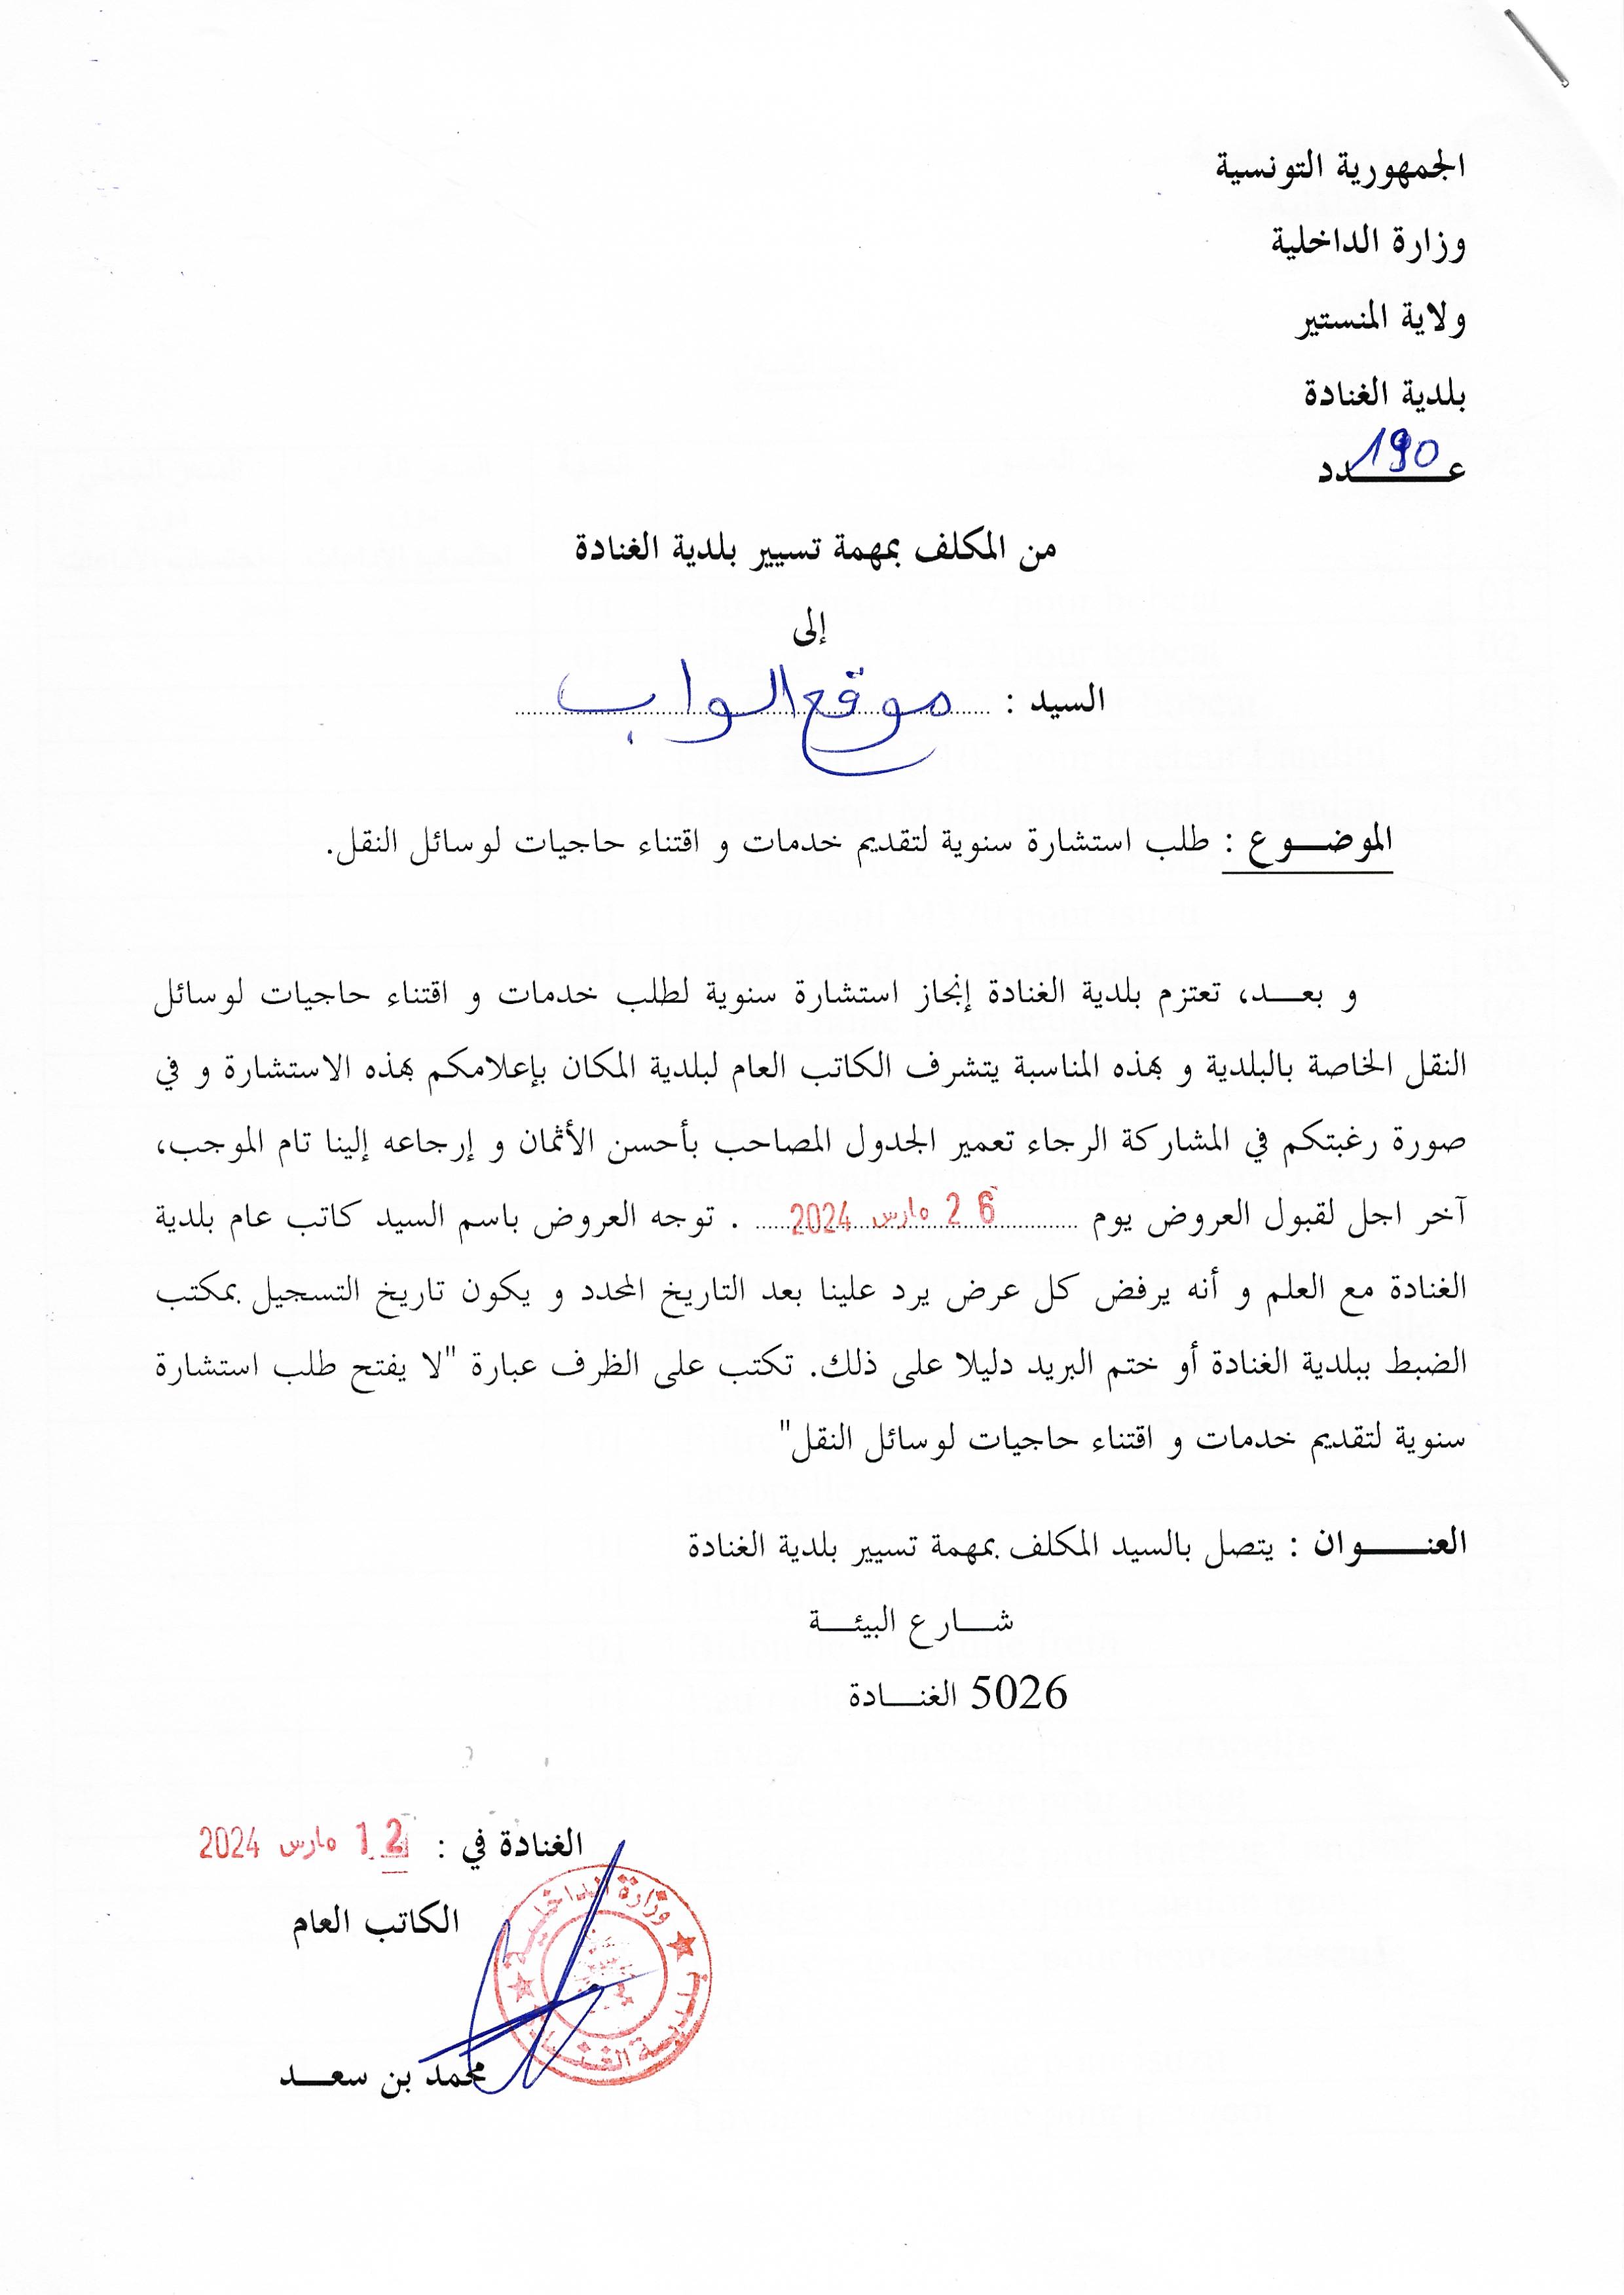 الجمهورية التونسية
وزارة الداخلية
ولاية المنستير
بلدية الغنادة
عـــدد 190
من المكلف بمهمة تسيير بلدية الغنادة
إلى
السيد : موقع الواب
الموضـــوع : طلب استشارة سنوية لتقديم خدمات و اقتناء حاجيات لوسائل النقل.
و بعـــد، تعتزم بلدية الغنادة إنجاز استشارة سنوية لطلب خدمات و اقتناء حاجيات لوسائل
النقل الخاصة بالبلدية و بهذه المناسبة يتشرف الكاتب العام لبلدية المكان بإعلامكم بهذه الاستشارة و في
صورة رغبتكم في المشاركة الرجاء تعمير الجدول المصاحب بأحسن الأثمان و إرجاعه إلينا تام الموجب،
آخر اجل لقبول العروض يوم 26 مارس 2024 . توجه العروض باسم السيد كاتب عام بلدية
الغنادة مع العلم و أنه يرفض كل عرض يرد علينا بعد التاريخ المحدد و يكون تاريخ التسجيل بمكتب
الضبط ببلدية الغنادة أو ختم البريد دليلا على ذلك. تكتب على الظرف عبارة "لا يفتح طلب استشارة
سنوية لتقديم خدمات و اقتناء حاجيات لوسائل النقل"
العنـــــوان : يتصل بالسيد المكلف بمهمة تسيير بلدية الغنادة
شـــارع البيئـــة
5026 الغنـــادة
الغنادة في : 12 مارس 2024
الكاتب العام
وزارة الداخلية
بلدية الغنادة
محمد بن سعـــد